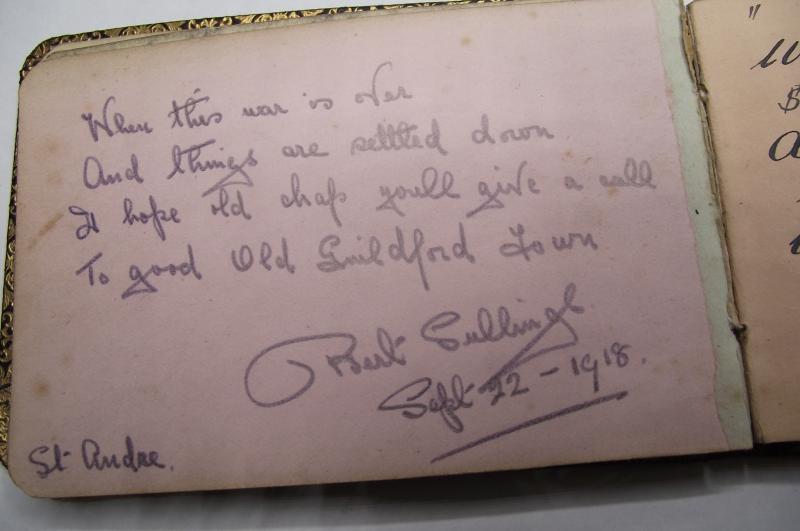 When this war is over
And things are settled down
I hope old chap you'll give a call
To good Old Guildford Town
Bert
Sept 22 - 1918.
St Andre.
"